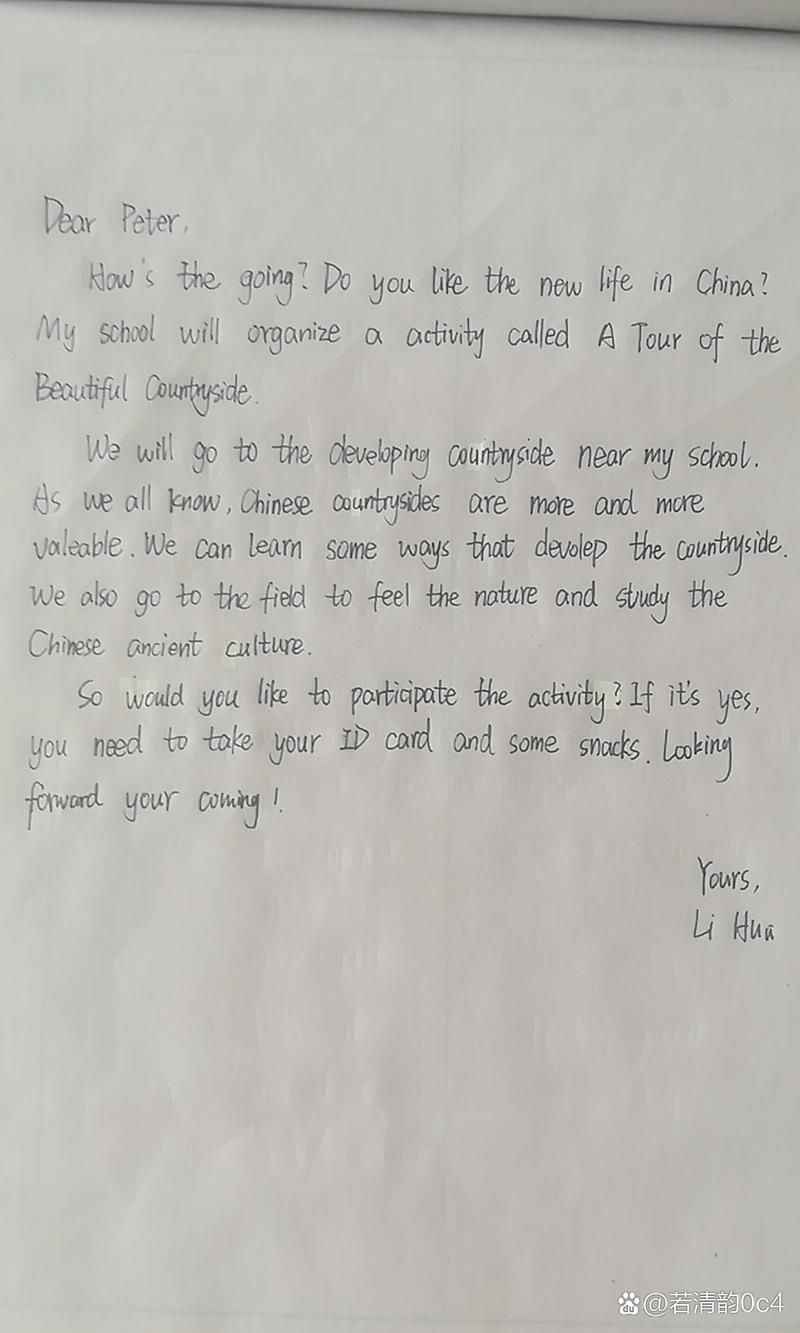 Dear Peter,
How's the going? Do you like the new life in China?
My school will organize a activity called A Tour of the
Beautiful Countryside.
We will go to the developing countryside near my school.
As we all know, Chinese countrysides are more and more
valeable. We can learn some ways that devolep the countryside.
We also go to the field to feel the nature and study the
Chinese ancient culture.
So would you like to participate the activity? If it's yes,
you need to take your ID card and some snacks. Looking
forward your coming!
Yours,
Li Hua
@若清韵0c4